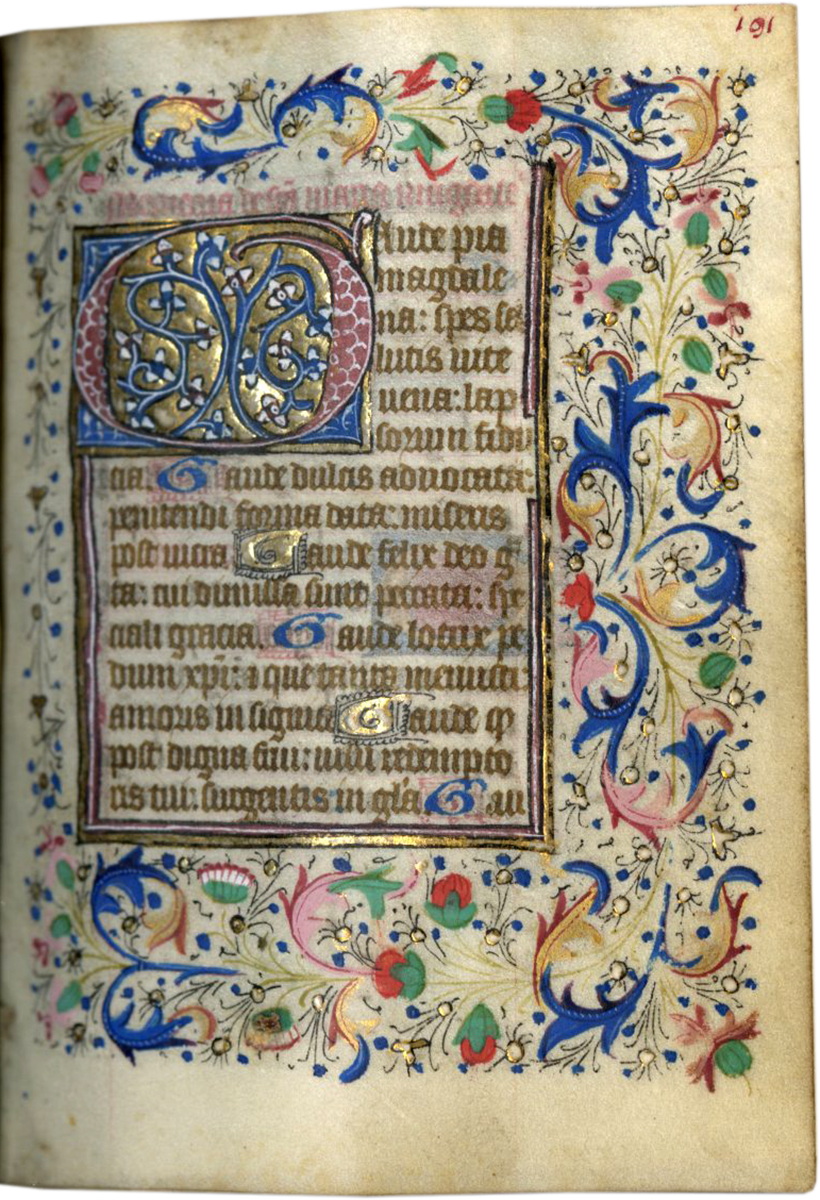 191
Memoria de sca maria magdale
Gaude pia
magdale
na: spes sa
lutis vite
vena: lap
sorum fidu
cia. Gaude dulcis advocata:
penitendi forma data: miseris
post vicia Gaude felix deo g
ta: cui dimissa sunt peccata: spe
ciali gracia. Gaude lotrix pe
dum xpi: a que tanta meruisti
amoris insignia Gaude q
post digna frui: visu redempto
ris tui: surgentis in gla Gau